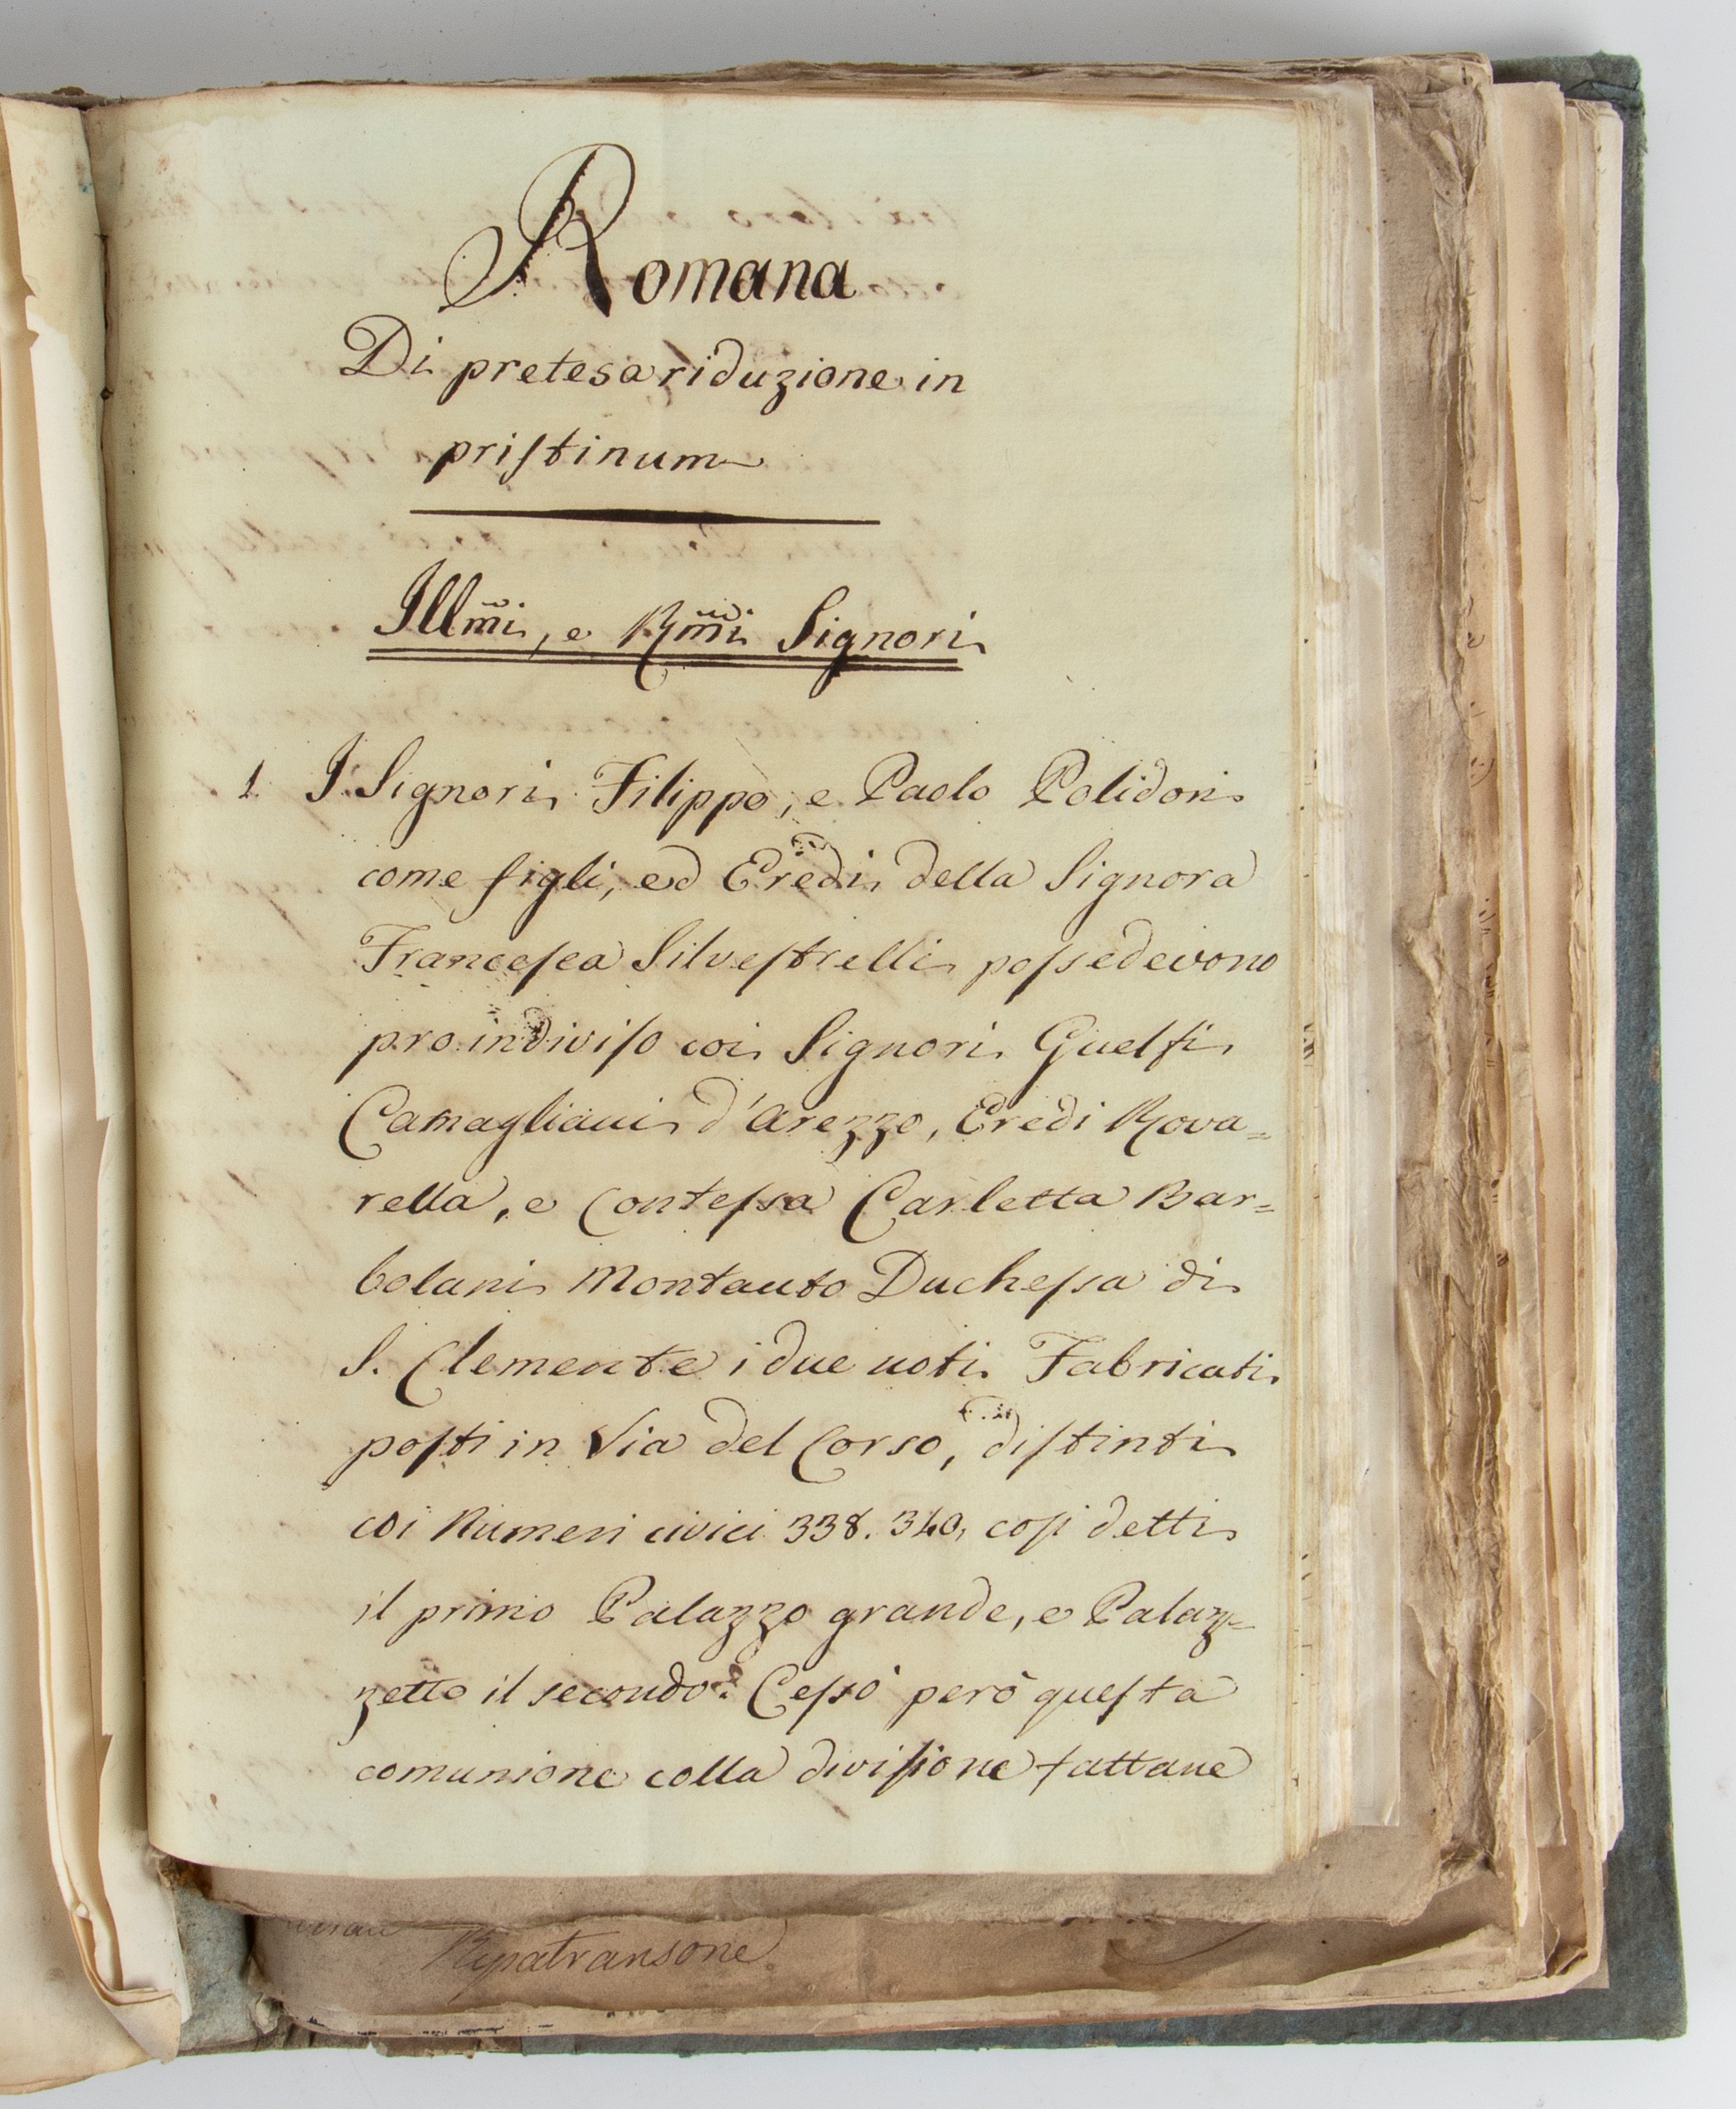 Romana
Di pretesa riduzione in
priſtinum
Illm̃i, e Rm̃i Signori
1 I Signori Filippo, e Paolo Polidori
come figli, ed Eredi della Signora
Franceſca Silveſtrelli poſsedevono
pro indiviſo coi Signori Guelfi
Camagliani d'Arezzo, Eredi Rova=
rella, e Conteſsa Carletta Bar=
bolani Montauto Ducheſsa di
S. Clemente i due noti Fabricati
poſti in Via del Corso, diſtinti
coi Numeri civici 338. 340, coſi detti
il primo Palazzo grande, e Palaz=
zetto il secondo. Ceſsò però queſta
comunione colla diviſione fattane
Ripatransone